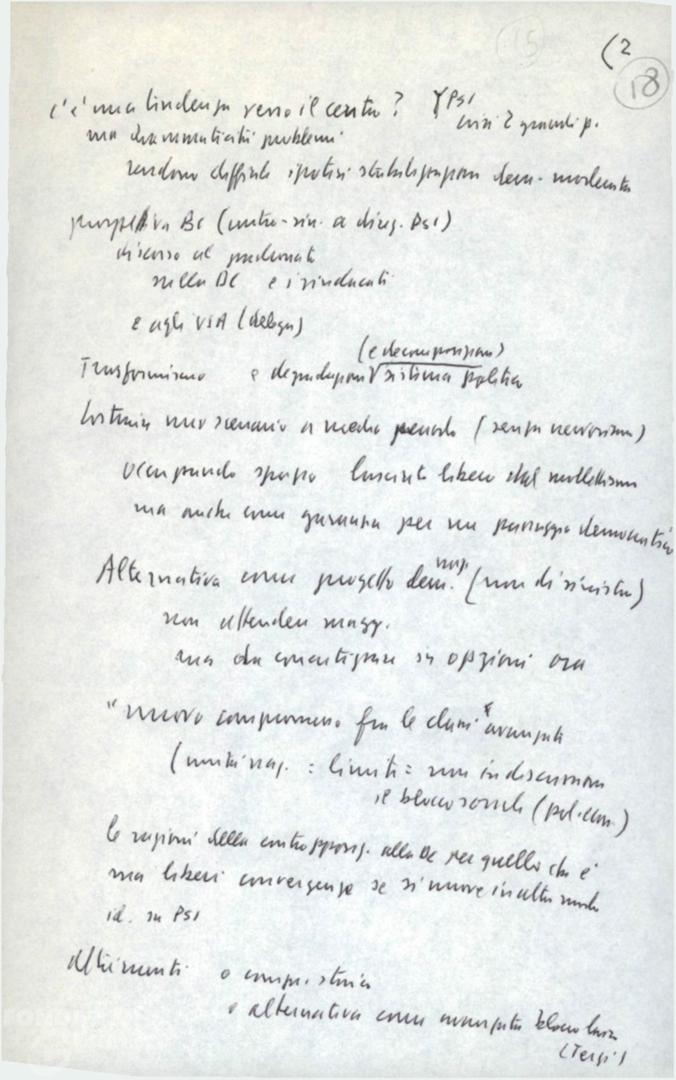 15
(2
18
c'è una tendenza verso il centro? PSI
crisi 2 grandi p.
ma drammaticità problemi
rendono difficile ipotesi stabilizzazione dem-moderata
prospettiva BC (centro-sin. a direz. PSI)
discorso al padronato
sulla DC e i sindacati
e agli USA (delega)
(e decomposizione)
Trasformismo e degradazione sistema politico
Costruire uno scenario a medio periodo (senza nervosismi)
occupando spazio lasciato libero dal
ma anche come garanzia per un passaggio democratico
nuov.
Alternativa come progetto dem. (non di sinistra)
non attendere magg.
ma da concretizzare in opzioni ora
"nuovo compromesso fra le classi" avanzato
(unità naz. = limiti = non in discussione
il blocco sociale (pol-econ.)
le ragioni della contrapposiz. alla DC per quello che è
ma liberi convergenze se si muove in altro modo
id. su PSI
altrimenti o comp. storico
o alternativa come avanzata blocco